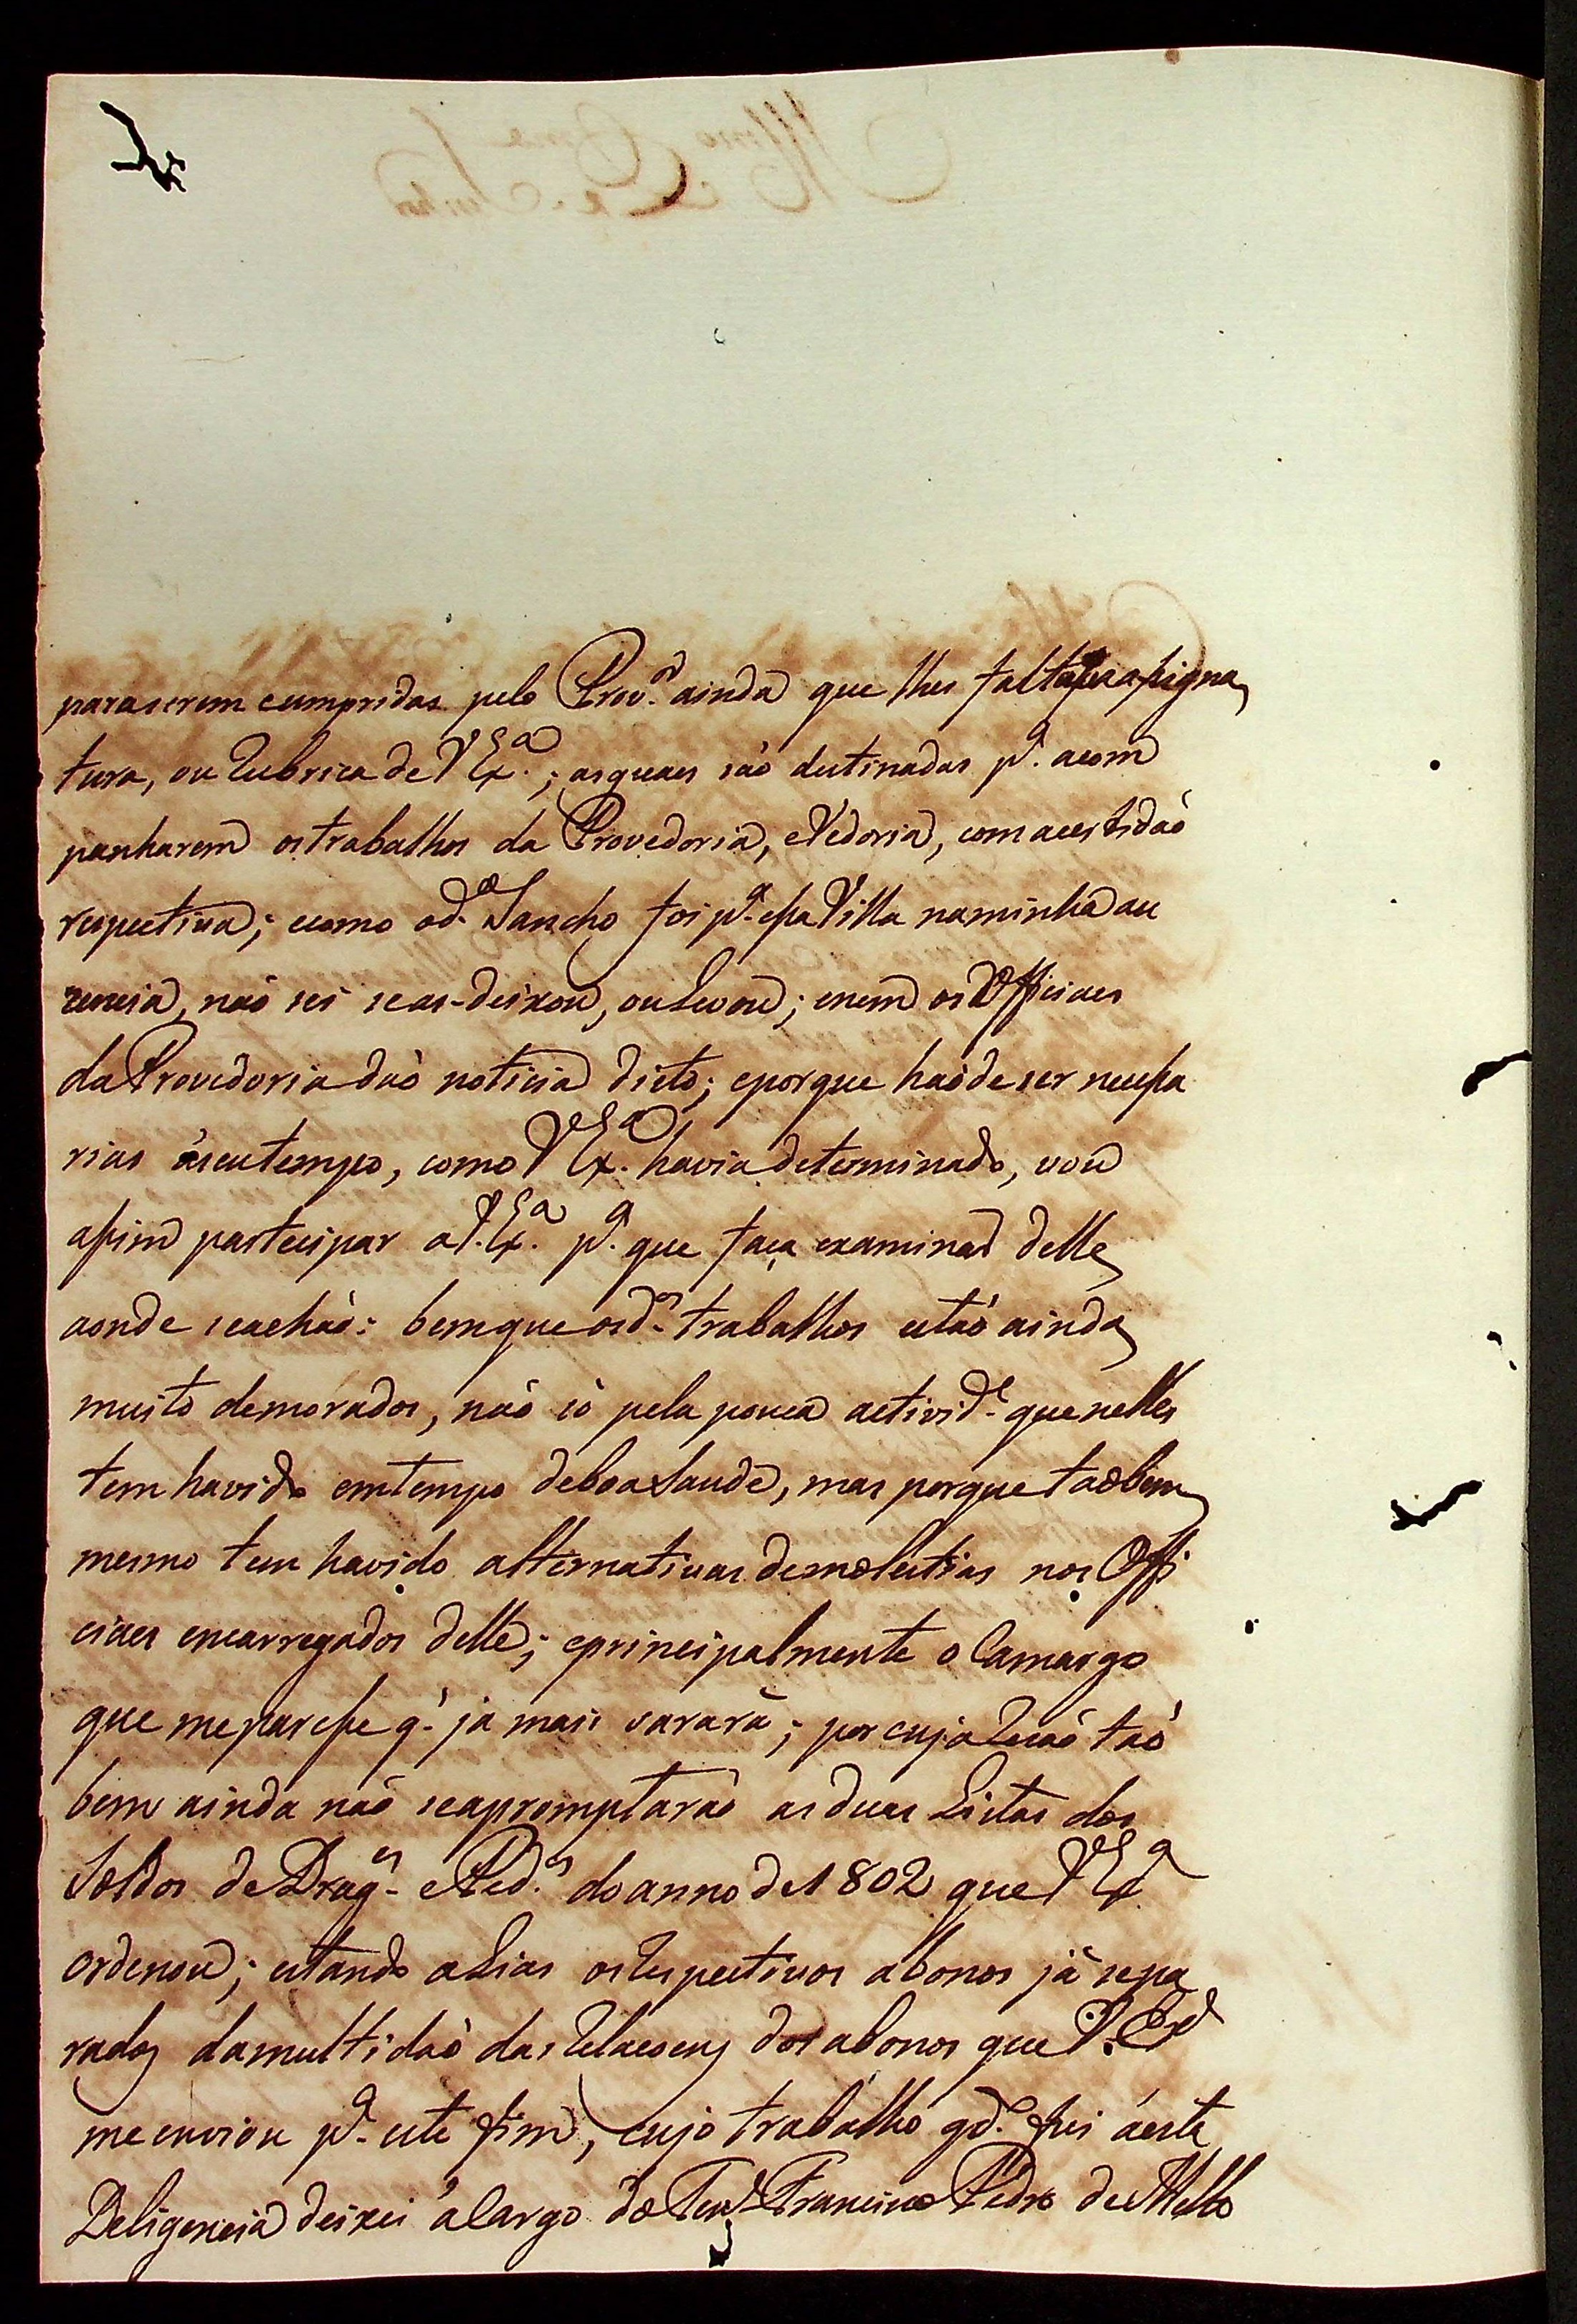 para serem cumpridas pelo Prov.or ainda que lhes falta a assigna
tura, ou Rubrica de V Ex.a; as quaes são destinadas p.a acom
panharem os trabalhos da Provedoria, e Vedoria, com a certidaõ
respectiva; e como o d.o Sancho foi p.a essa Villa na minha au
zencia, naõ sei se as-deixou, ou Levou; e nem os Officiaes
da Provedoria daõ noticia disto; e porque haõ de ser necessa
rias á seu tempo, como V Ex.a havia determinado, vou
assim partecipar a V. Ex.a p.a que faça examinar delle
aonde se achaõ: bem que os d.os trabalhos estaõ ainda
muito demorados, naõ só pela pouca activid.e que nelles
tem havido em tempo de boa Saude, mas porque taõbem
mesmo tem havido alternativas de molestias nos Offi
ciaes encarregados delle; e principalmente o Camargo
que me paresse q' ja mais sarará; por cuja Rezaõ taõ
bem ainda naõ se apromptaraõ as duas Listas dos
Soldos de Drag.es e Ped.es do anno de 1802 que V Ex.a
ordenou; estando aLias os Respectivos abonos já sepa
rados da multidaõ das Relaçoens dos abonos que V. Ex.a
me enviou p.a este fim, cujo trabalho q.do fui á esta
Deligencia deixei á Cargo do Ten.e Francisco Pedro de Mello